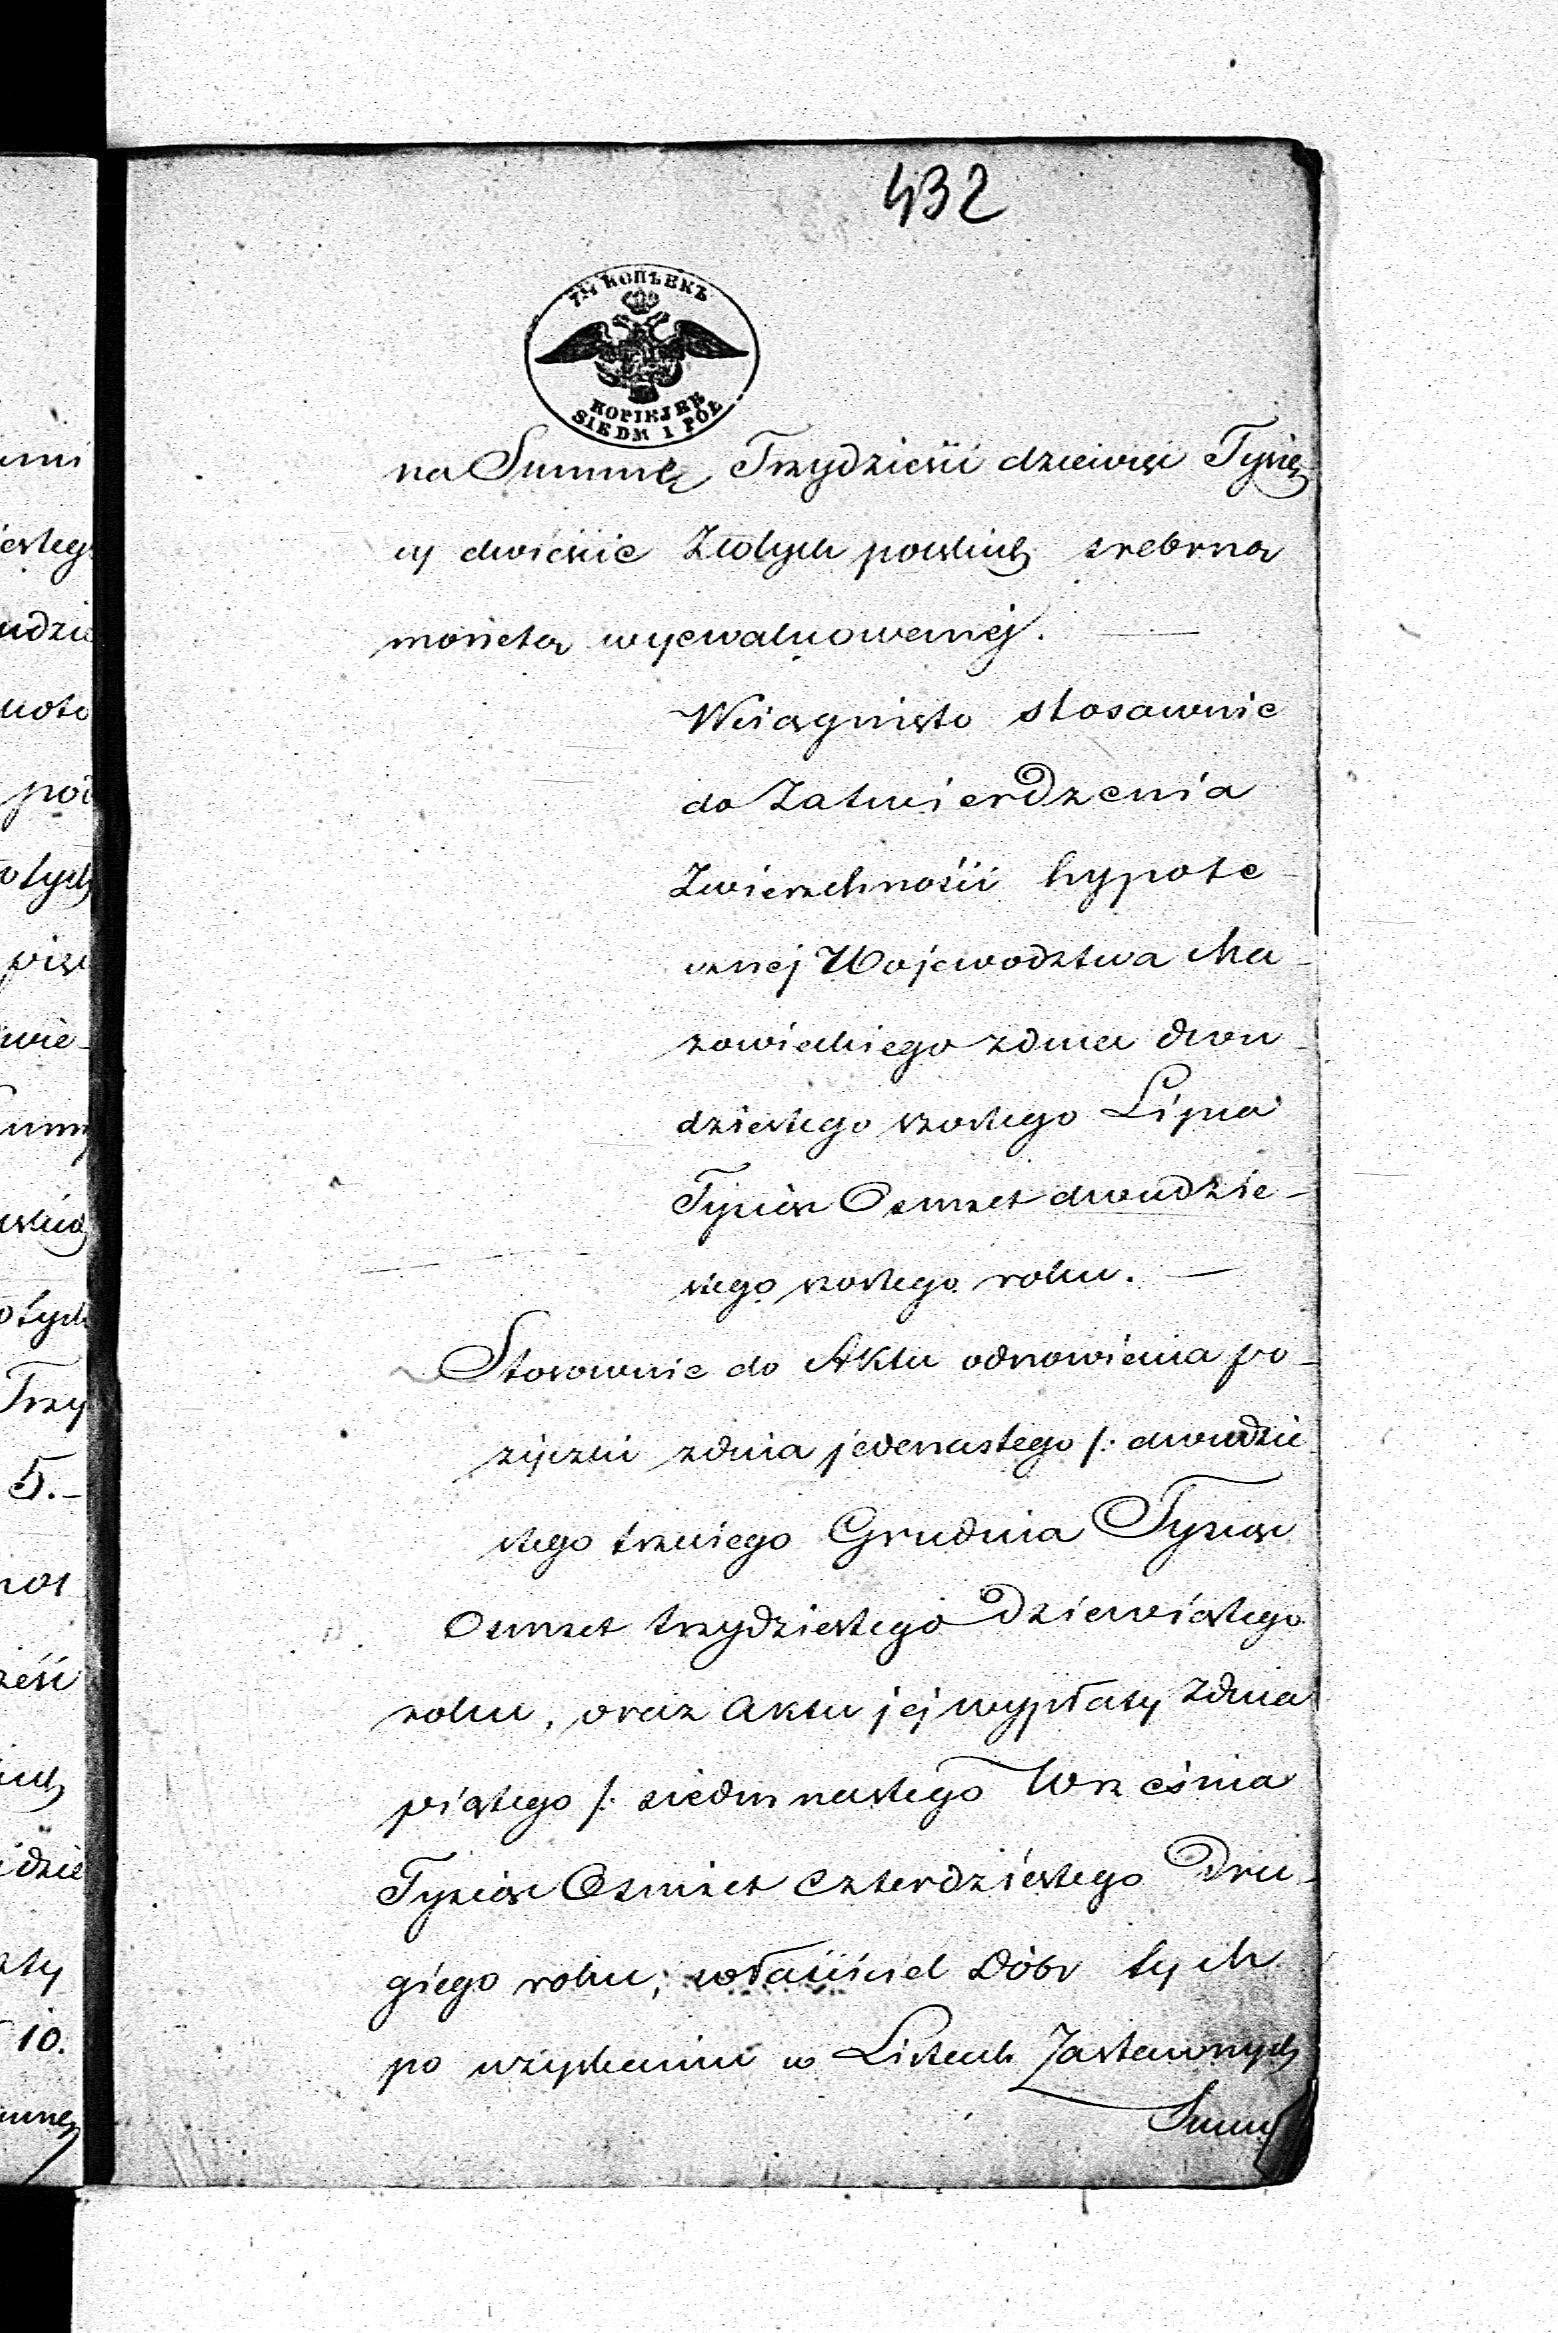 432
7½ КОПѢЕКЪ
KOPIEJEK
SIEDM I PÓŁ
na Summę Trzydzieści dziewięć Tysię
cy dwieście Złotych polskich srebrną
monetą wyewaluowanej. —
Wciągnięto stosownie
do Zatwierdzenia
Zwierzchności hypote-
cznej Województwa Ma-
zowieckiego z dnia dwu-
dziestego szóstego Lipca
Tysiąc Osmset dwudzie-
stego szóstego roku. —
Stosownie do Aktu odnowienia po-
życzki z dnia jedenastego /: dwudzie-
stego trzeciego Grudnia Tysiąc
Osmset trzydziestego Dziewiątego
roku, oraz Aktu jej wypłaty z dnia
piątego /: siedmnastego Września
Tysiąc Osmset Czterdziestego Dru-
giego roku; właściciel Dóbr tych
po uzyskaniu w Listach Zastawnych
Summy
ami
iestego
udzie
poi
otych
więc
wie-
Summ
olskich
otych
Trzy
5.-
dzie
10.